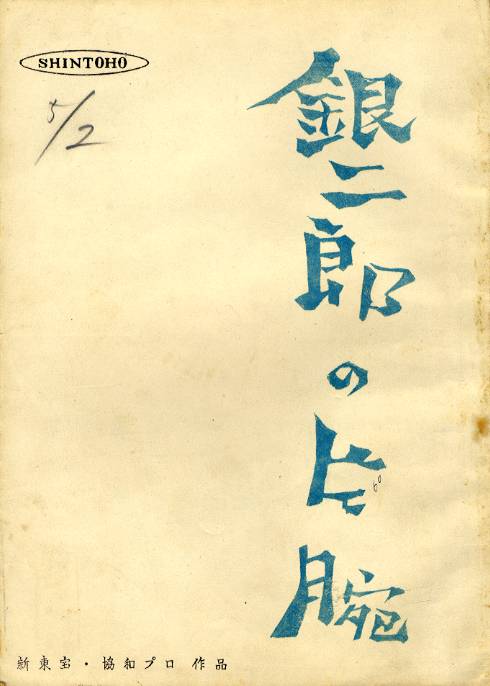 SHINTOHO
5/2
銀二郎の片腕
新東宝・協和プロ 作品